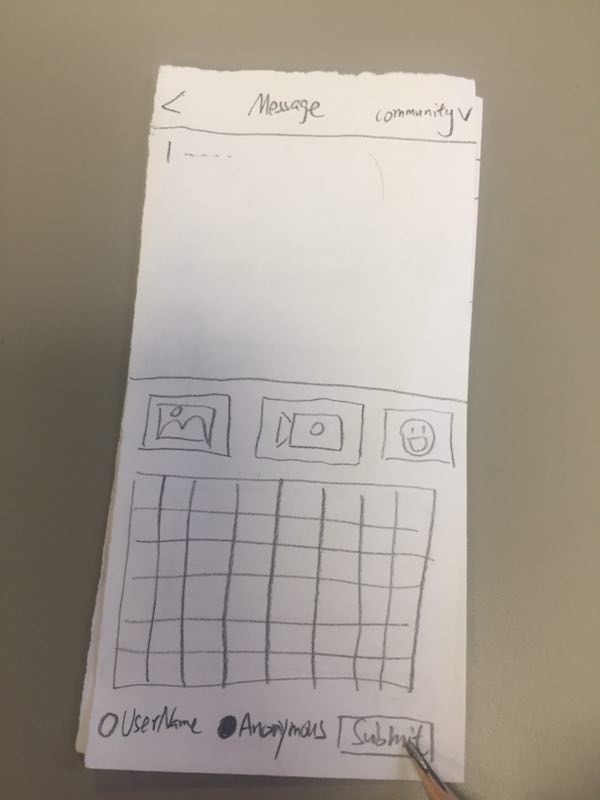 < Message community ∨
UserName Anonymous Submit